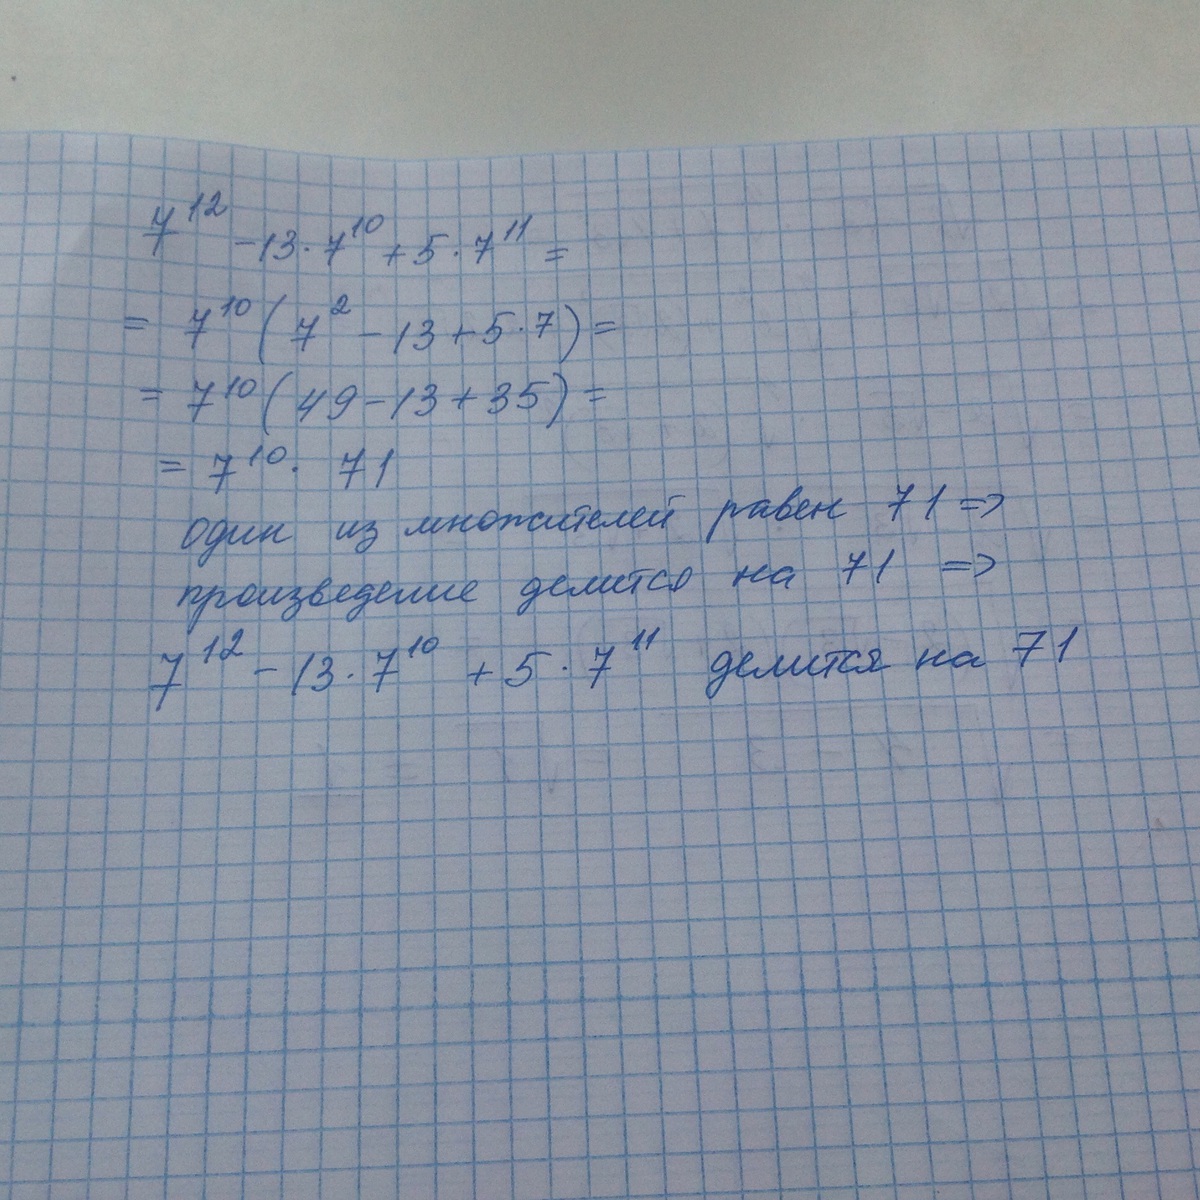 7¹² - 13·7¹⁰ + 5·7¹¹ =
= 7¹⁰(7² - 13 + 5·7) =
= 7¹⁰(49 - 13 + 35) =
= 7¹⁰· 71
один из множителей равен 71 =>
произведение делится на 71 =>
7¹² - 13·7¹⁰ + 5·7¹¹ делится на 71